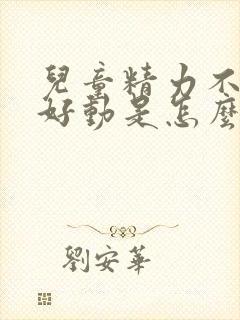 兒童精力不
好動是怎麼
劉安華